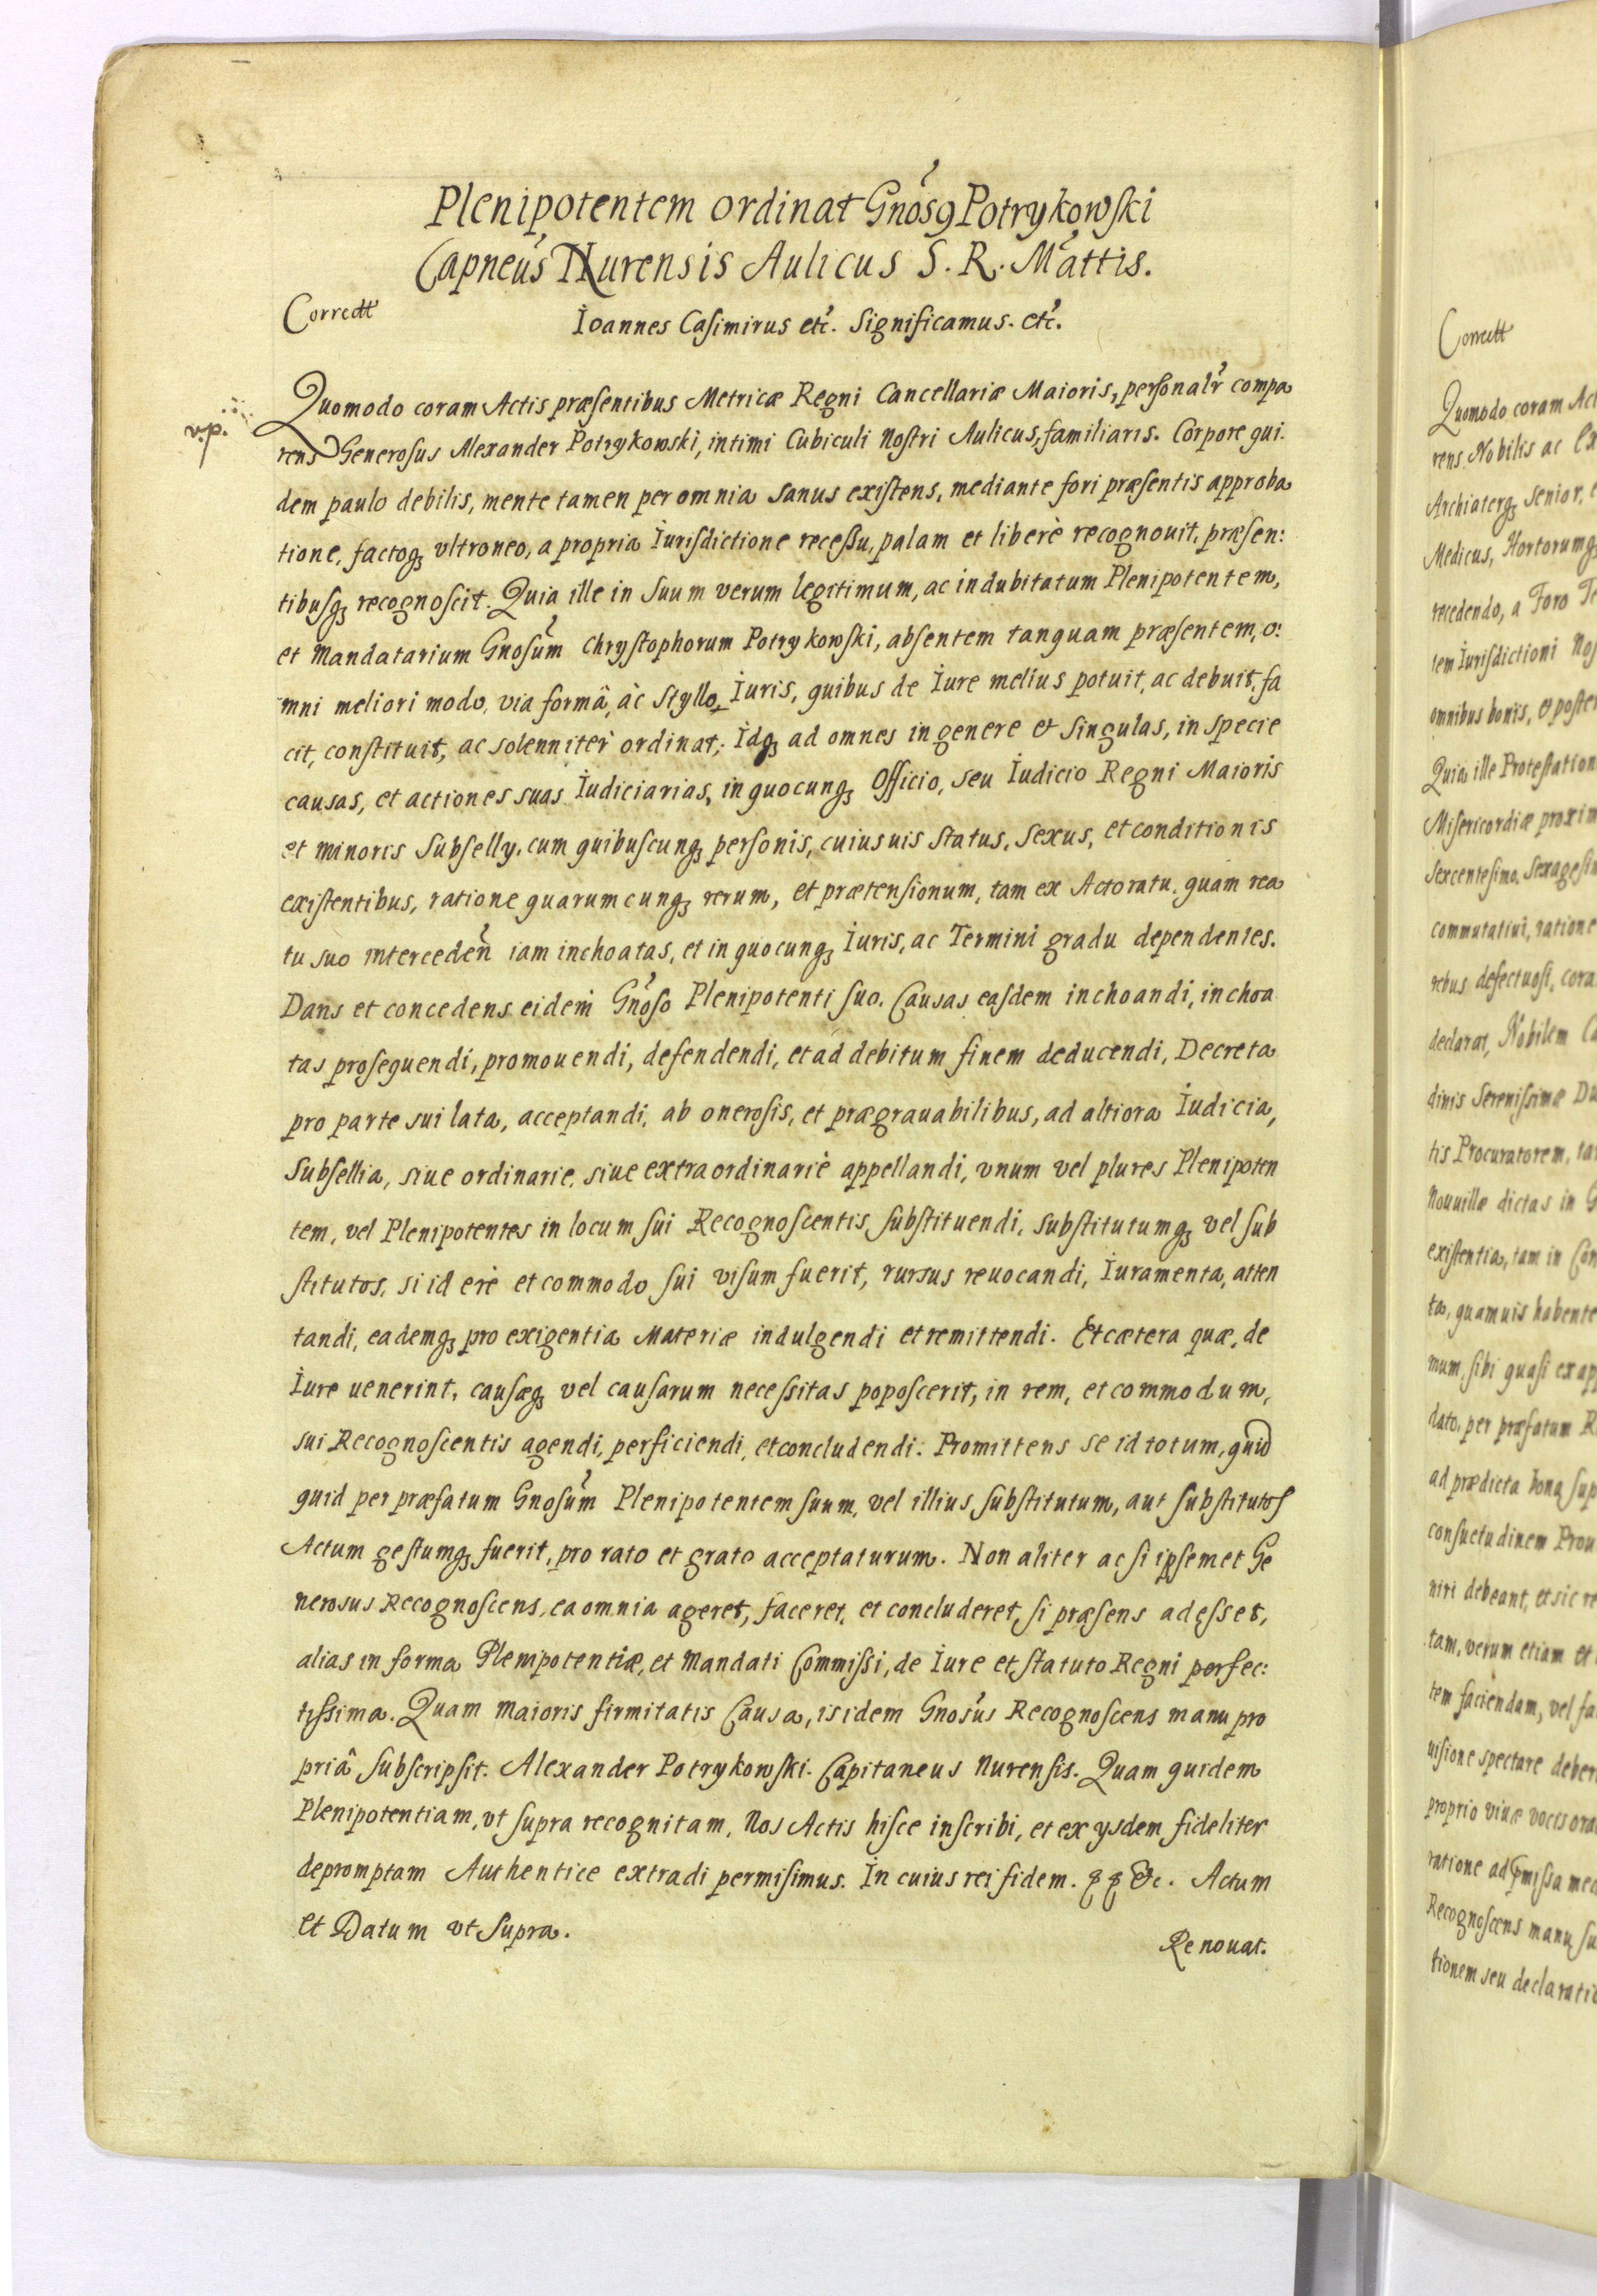 Plenipotentem ordinat Gnosꝯ Potrykowski
Capneus Nurensis Aulicus S. R. Mattis.
Corredtt
Ioannes Casimirus etc. Significamus. etc.
v.p.
Quomodo coram Actis præsentibus Metricæ Regni Cancellariæ Maioris, personalr compa
rens Generosus Alexander Potrykowski, intimi Cubiculi Nostri Aulicus, familiaris. Corpore qui.
dem paulo debilis, mente tamen per omnia sanus existens, mediante fori præsentis approba
tione, factoq; vltroneo, a propria Iurisdictione recessu, palam et liberè recognouit, præsen:
tibusq; recognoscit. Quia ille in suum verum legitimum, ac indubitatum Plenipotentem,
et Mandatarium Gnosum Chrystophorum Potrykowski, absentem tanquam præsentem, o:
mni meliori modo, via formâ, àc Styllo, Iuris, quibus de Iure melius potuit, ac debuit, fa
cit, constituit, ac solenniter ordinat, Idq; ad omnes in genere et singulas, in specie
causas, et actiones suas Iudiciarias, in quocunq; Officio, seu Iudicio Regni Maioris
et minoris Subselly, cum quibuscunq; personis, cuiusuis status, sexus, et conditionis
existentibus, ratione quarumcunq; rerum, et prætensionum, tam ex Actoratu, quam rea
tu suo interceden iam inchoatas, et in quocunq; Iuris, ac Termini gradu dependentes.
Dans et concedens eidem Gnoso Plenipotenti suo. Causas easdem inchoandi, inchoa
tas prosequendi, promouendi, defendendi, et ad debitum finem deducendi, Decreta
pro parte sui lata, acceptandi, ab onerosis, et prægrauabilibus, ad altiora Iudicia,
Subsellia, siue ordinarie, siue extraordinariè appellandi, vnum vel plures Plenipoten
tem, vel Plenipotentes in locum sui Recognoscentis substituendi, substitutumq; vel sub
stitutos, si id erè et commodo sui visum fuerit, rursus reuocandi, Iuramenta, atten
tandi, eademq; pro exigentia Materiæ indulgendi et remittendi. Et cætera quæ, de
Iure uenerint, causæq; vel causarum necessitas poposcerit, in rem, et commodum,
sui Recognoscentis agendi, perficiendi, et concludendi. Promittens se id totum, quid
quid per præfatum Gnosum Plenipotentem suum, vel illius, substitutum, aut substitutos
Actum gestumq; fuerit, pro rato et grato acceptaturum. Non aliter ac si ipsemet Ge
nerosus Recognoscens, ea omnia ageret, faceret, et concluderet, si præsens adesset,
alias in forma Plenipotentiæ, et Mandati Commissi, de Iure et, statuto Regni perfec:
tissima. Quam maioris firmitatis Causa, is idem Gnosus Recognoscens manu pro
priâ subscripsit. Alexander Potrykowski. Capitaneus Nurensis. Quam quidem
Plenipotentiam, vt supra recognitam, Nos Actis hisce inscribi, et ex ysdem fideliter
depromptam Authentice extradi permisimus. In cuius rei fidem. q q &c. Actum
et Datum vt supra.
Renouat.
Corredtt
Quomodo coram Act
rens Nobilis ac Ex
Archiaterq; senior,
Medicus, Hortorumq;
recedendo, a Foro Te
tem Iurisdictioni Nos
omnibus bonis, & poster
Quia ille Protestation
Misericordiæ proxim
sexcentesimo, sexagesim
commutatiui, ratione
rebus defectuosi, cora
declarat, Nobilem Ca
dinis Serenissimæ Du
tis Procuratorem, tan
Nouuillæ dictas in G
existentia, tam in Con
ta, quamuis habente
mum, sibi quasi ex ap
dato, per præfatum R
ad prædicta bona sup
consuetudinem Prou
niri debeant, et sic re
tam, verum etiam et
tem faciendam, vel fa
uisione spectare deber
proprio viuæ vocis ora
ratione ad p̱missa med
Recognoscens manu su
tionem seu declaratio